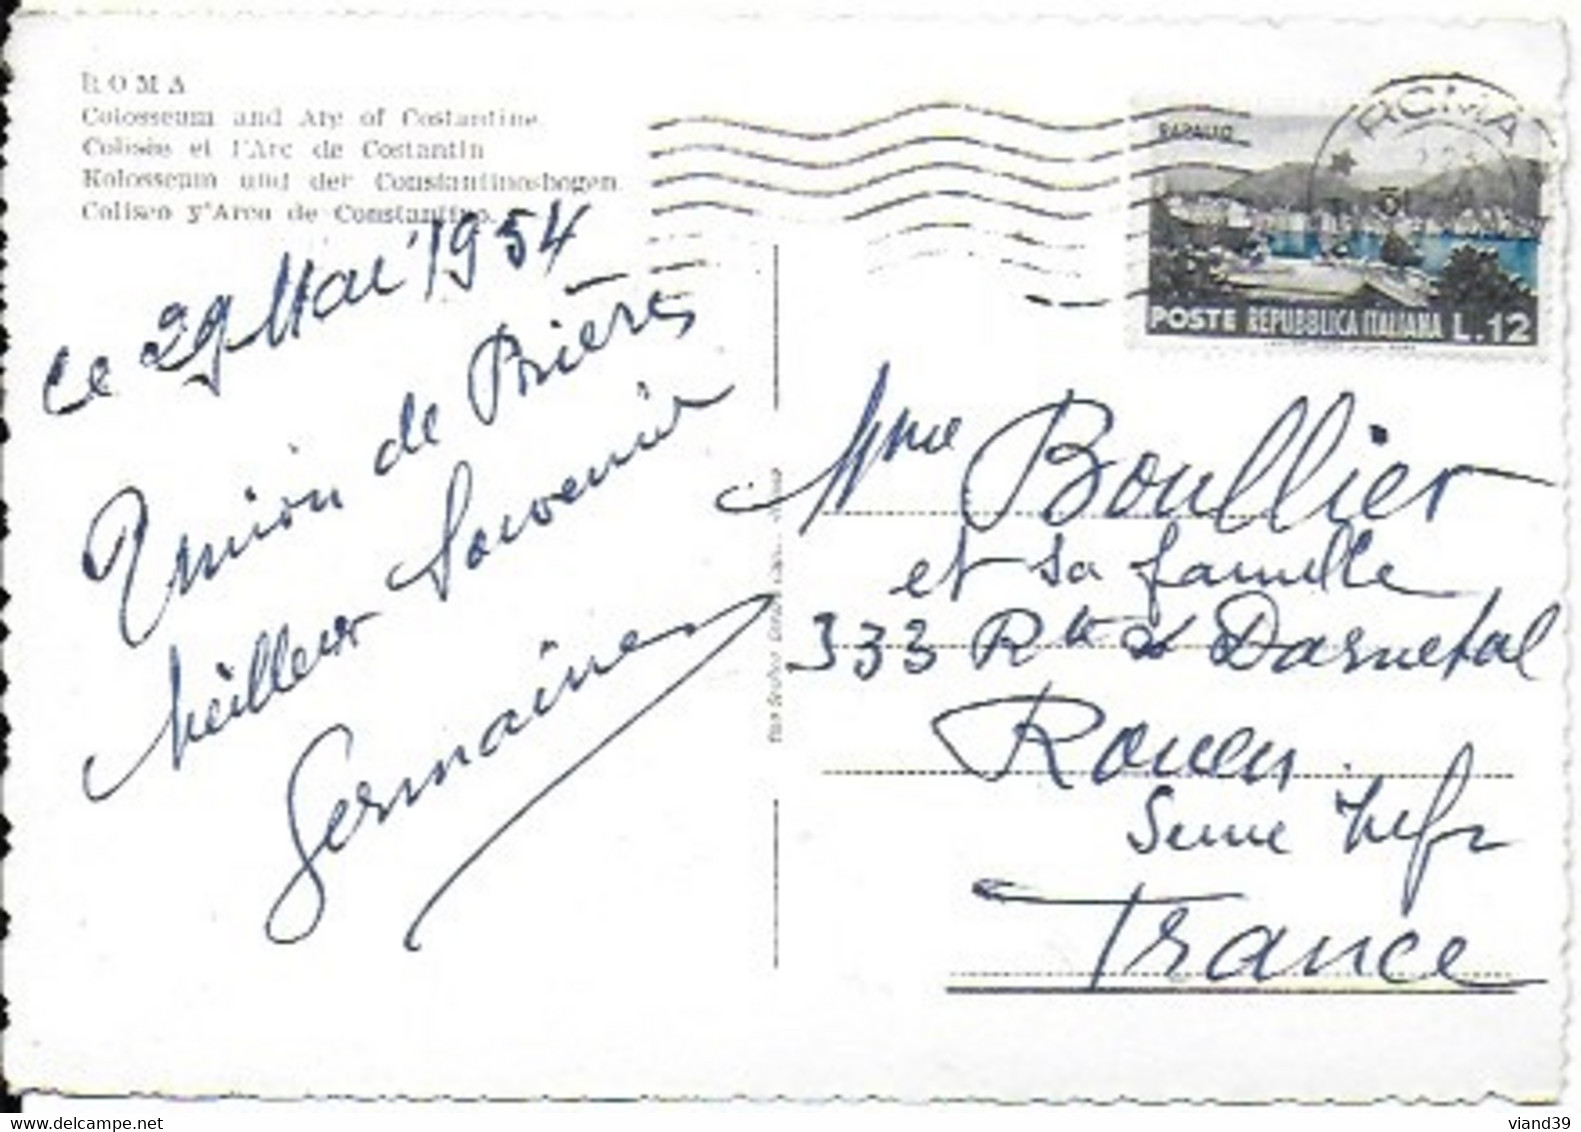 ROMA
Colosseum and Arc of Costantine
Colisée et l'Arc de Costantin
Kolosseum und der Constantinosbogen
Coliseo y'Arco de Constantino.
Le 29 Mai 1954
Union de Prières
Meilleur Souvenir
Germaine
ROMA
RAPALLO
POSTE REPUBBLICA ITALIANA L.12
Mme Boullier
et sa famille
333 Rte de Darnetal
Rouen
Seine Infre
France
viand39